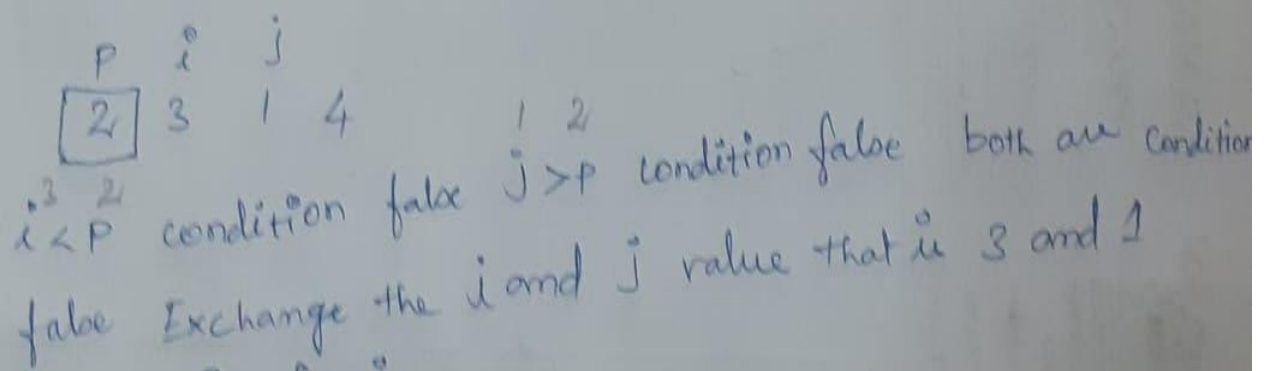 P i j
2 3 1 4
1 2
3 2
i<P condition false j>P condition false both are Condition
false Exchange the i and j value that is 3 and 1